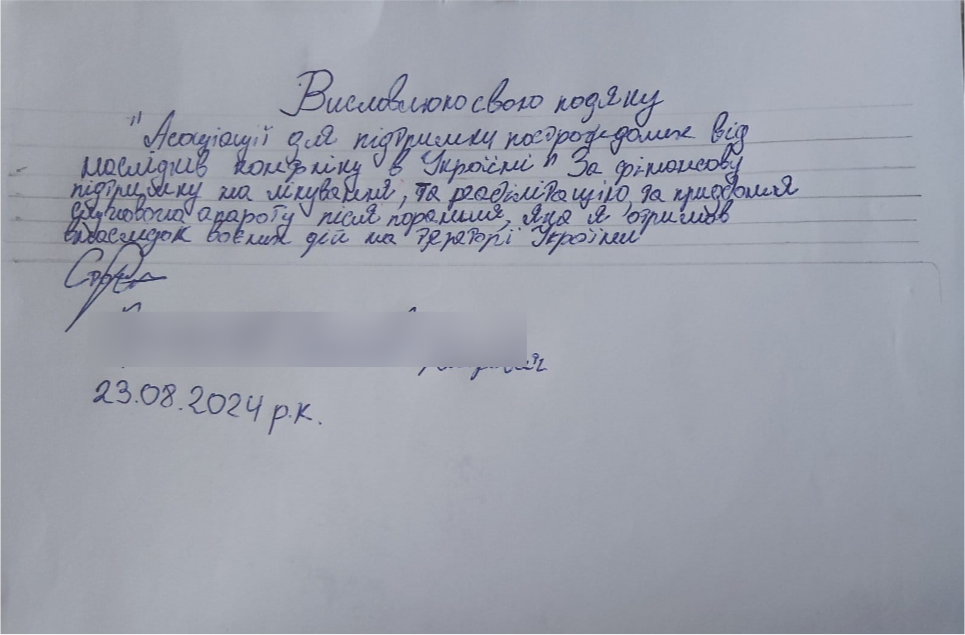 Висловлюю свого подяку
"Асоціації для підтримки постраждалих від
наслідків конфліку в Україєні" За фінансову
підтримку на лікування, та реабілітацію, та придбання
слухового апарату після поранння, яка я отримав
внаслідок воєних дій на тереторії України
23.08.2024 р.к.